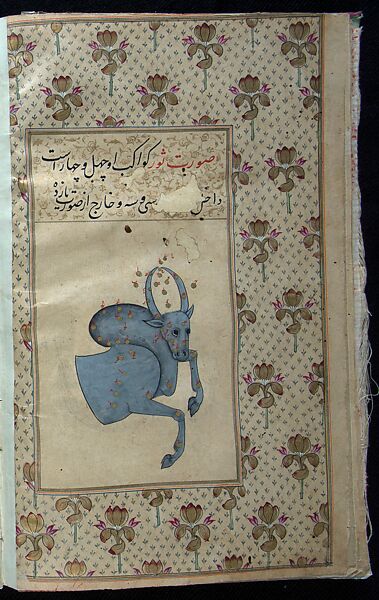 صورت ثور کواکب او چهل و چهار است
داخل سی و سه و خارج از صورت یازده